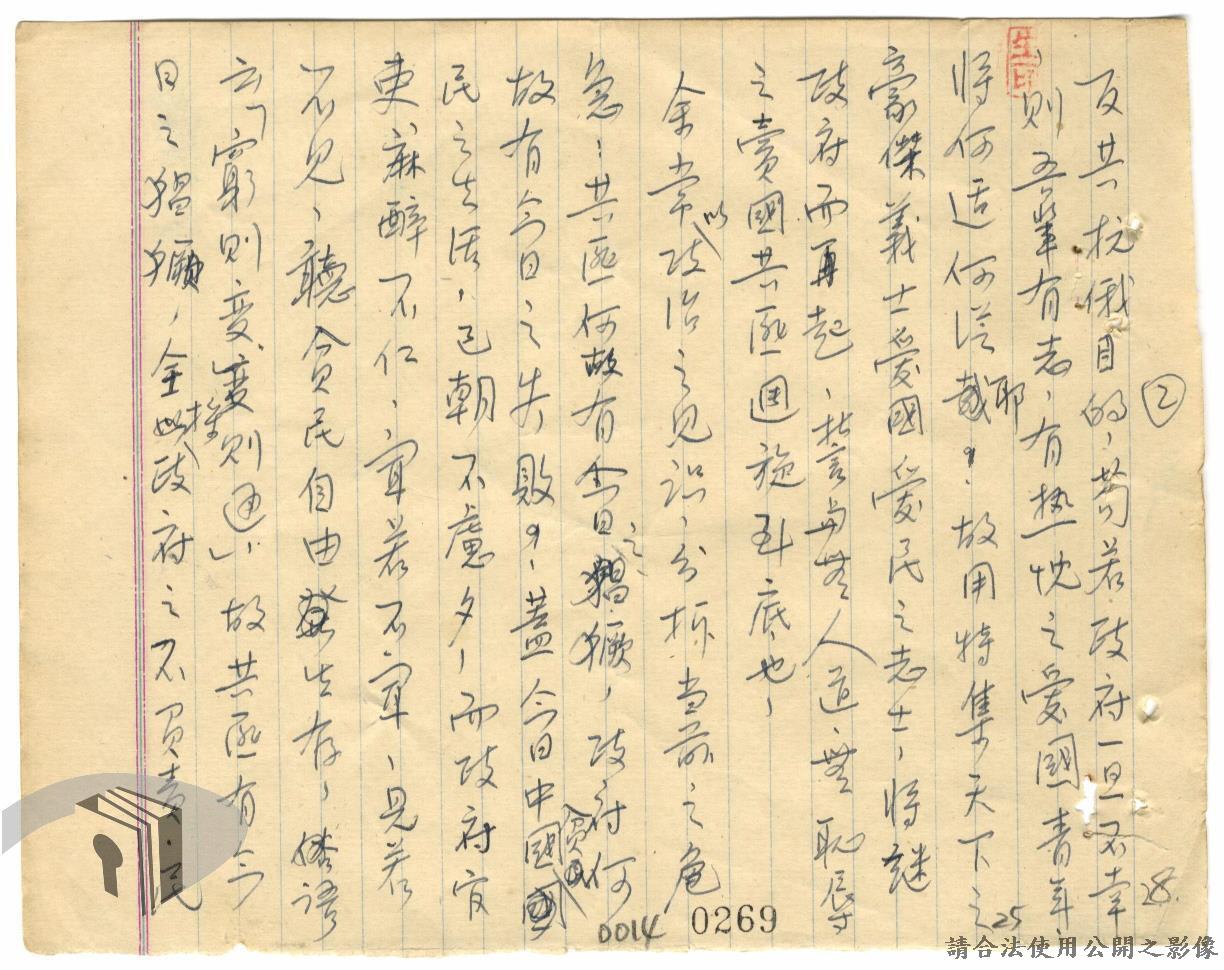 ②
反共抗俄目的、苟若政府一旦不幸
則吾輩有志、有热忱之爱國青年、
將何适何從耶、故用特集天下之
豪傑義士爱國爱民之志士、將継
政府而再起、誓与無人道、無恥辱
之賣國共匪週旋到底也、
余常以政治之見識、分析当前之危
急：共匪何故有今日之猖獗，政府何
故有今日之失敗。蓋今日中國貧
民之生活，已朝不慮夕，而政府官
吏麻醉不仁、宜若不宜、見若
不見、聽貧民自由生存，俗語
云「窮則变、变則通」，故共匪有今
日之猖獗，全操政府之不負責、民
28.
25
0014 0269
請合法使用公開之影像